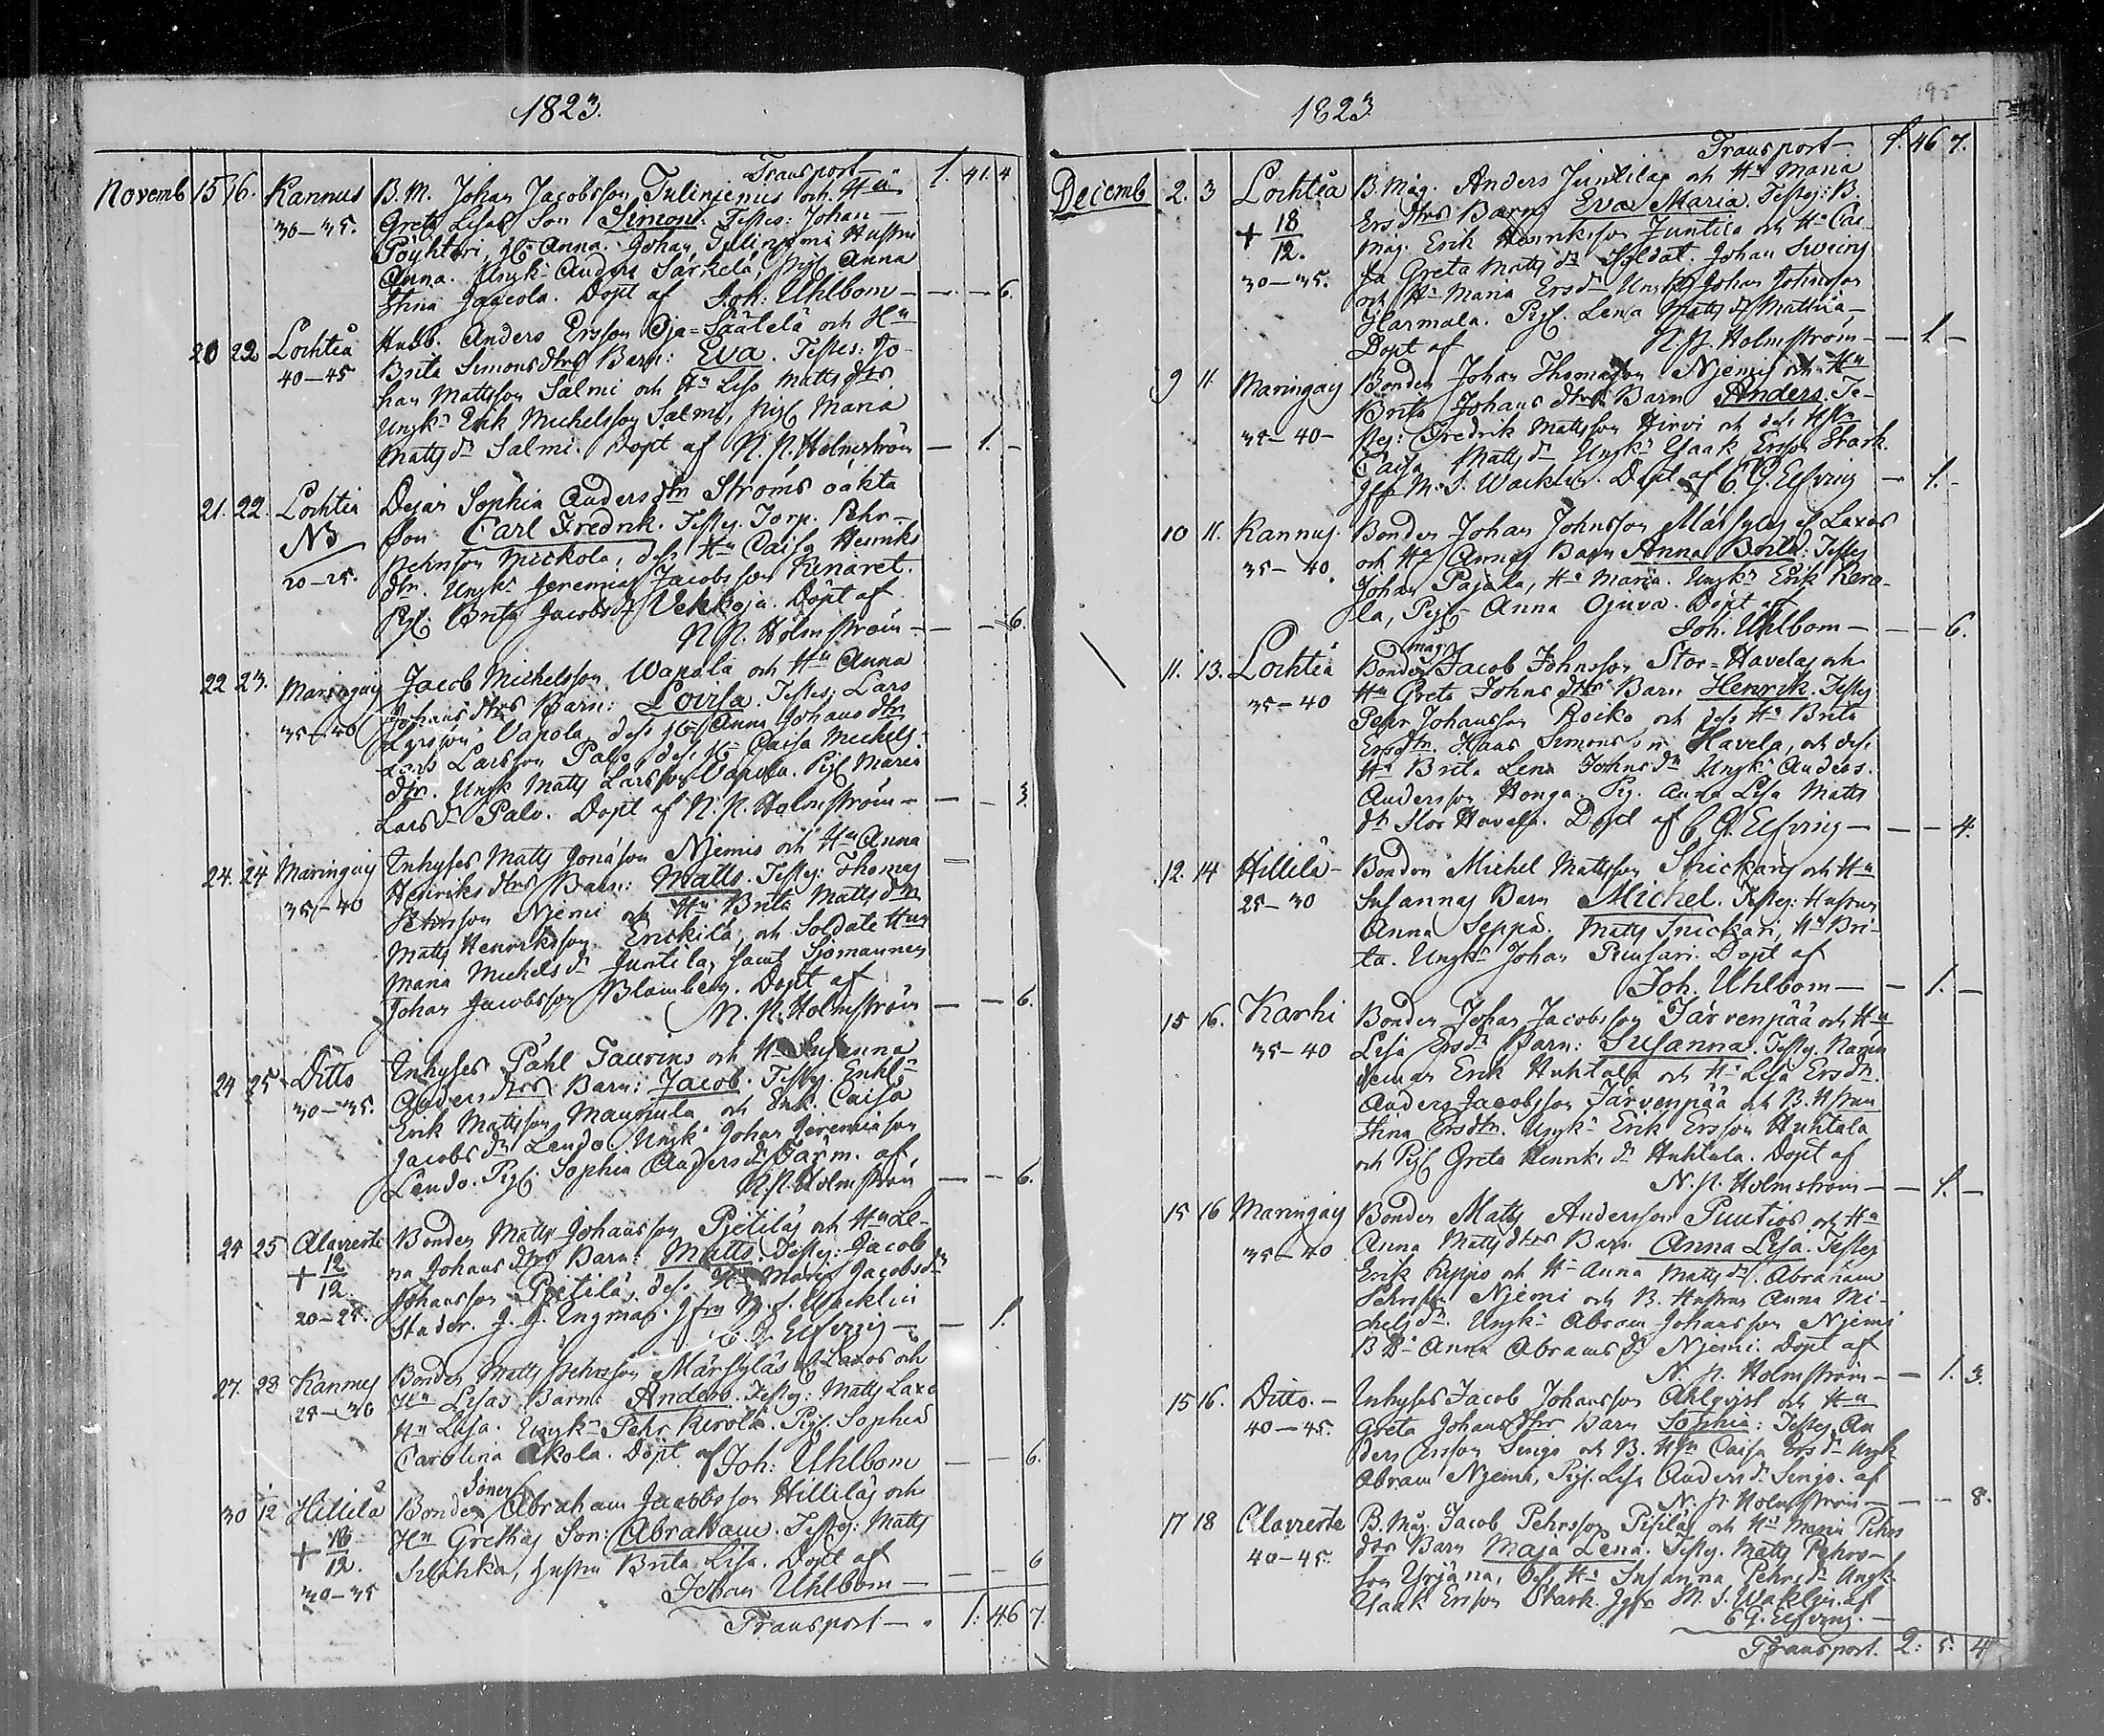 1823.
Transport — 1. 41. 4
Novemb 15 16. Kannus B. M. Johan Jacobsson Tulinjemis och Hu
30–35. Greta Lisas Son Simon. Testes: Johan
Pöyhtäri, H. Anna. Johan Tulinjemi Hustru
Anna. Ungk. Anders Särkelä, Pig. Anna
Stina Jaacola. Dopt af Joh: Uhlbom — — — 6.
20 22 Lochteå Husb. Anders Ersson Oja=Säätelä och Hu
40–45 Brita Simonsdtrs Barn: Eva. Testes: Jo-
han Mattsson Salmi och Hu Lisa Matts dtr.
Ungk. Erik Michelsson Salmi, Pig. Maria
Matts dr Salmi. Dopt af N. N. Holmström — 1. –
21. 22. Lochteå Dejan Sophia Anders dtr Ströms oäkta
NB Son Carl Fredrik. Testes. Torp. Pehr
20–25. Pehrsson Nickola, dess Hu Caisa Henriks
dtr. Ungk. Jeremias Jacobsson Kinaret.
Pig. Brita Jacobsdr Vekkoja. Döpt af
N. N. Holmström — — 6.
22 23. Maringais Jacob Michelsson Wapola och Hu Anna
35–40 Johans dtrs Barn: Lovisa. Testes: Lars
Larsson Vapola dess H. Anna Johans dtr
Lars Larsson Palo dess H. Caisa Michels
dtr. Ungk Matts Larsson Vapola. Pig Maria
Larsdr Palo. Dopt af N. N. Holmström — — 3.
24. 24 Maringais Inhyses Matts Jonasson Njemis och Hu Anna
35–40 Henriks dtrs Barn: Matts. Testes: Thomas
Pehrsson Njemi och Hu Brita Matts dtr
Matts Henriksson Erickilä, och Soldate Hus
Maria Michels dr Juntila, samt Sjömannen
Johan Jacobsson Blomberg. Dopt af
N. N. Holmström — — 6.
24 25 Ditto Inhyses Påhl Taurins och Hu Susanna
30–35. Anders dtrs Barn: Jacob. Testes. Enkl.
Erik Mattsson Maunula och Enk. Caisa
Jacobs dr Lendo. Ungk. Johan Jeremiasson
Lendo. Pig. Sophia Anders dr Färm. af
N. N. Holmström — — 6.
24 25 Alaviirte Bonden Matts Johansson Pjetiläs och Hu Le-
+ 12/12 na Johans dtrs Barn: Matts. Testes: Jacob
20–25. Johansson Pjetilä, dess Hu Maria Jacobsdr
Studer. J. J. Ingman. Jfru M. S. Wacklin
C. G. Elfving — — 1.
27. 28 Kannus Bonden Matts Pehrsson Märsyläs el. Laxos och
25–30 Hu Lisas Barn: Anders. Testes: Matts Laxo
Hu Lisa. Ungk. Pehr Kerola. Pig. Sophia
Carolina Akola. Döpt af Joh: Uhlbom — — 6.
30 12 Hillilä Bonde Soner Abraham Jacobsson Hilliläs och
+ 18/12. Hu Grethas Son: Abraham. Testes: Matts
30–35 Schihka, Hustru Brita Lisa. Dopt af
Johan Uhlbom — — — 6
Transport — 1. 46 7.
1823.
195
Transport — 1. 46 7.
Decemb 2. 3 Lochteå B. Måg. Anders Juntilas och Hu Maria
+ 18/12. Ers dtrs Barn Eva Maria. Testes: B.
30–35. Måg. Erik Henriksson Juntila och Hu Cai-
sa Greta Matts dr Soldat. Johan Swung
och Hu Maria Ersdr Ungk Johan Johnsson
Harmala. Pig. Lena Matts dr Mattila,
Dopt af N. N. Holmström — 1. –
9 11. Maringais Bonden Johan Thomasson Njemis och Hu
35–40– Brita Johans dtrs Barn Anders. Te-
stes: Fredrik Mattsson Hirvi och dess Hu
Caisa Matts dr Ungk. Isaak Ersson Stark.
Jfr M. S. Wacklin. Dopt af C. G. Elfving — 1. –
10 11. Kannus. Bonden Johan Johnsson Märsyläs el Laxos
35–40. och Hu Annas Barn Anna Brita: Testes
Johan Pajala, Hu Maria. Ungk. Erik Kero-
la, Pig. Anna Ojuva. Döpt af
Joh. Uhlbom — — — 6.
11. 13. Lochteå Bonde måg. Jacob Johnsson Stor=Havelas och
35–40 Hu Greta Johns dtrs Barn Henrik. Testes
Pehr Johansson Roiko och dess Hu Brita
Ersdtr. Hans Simonsson Havela, och dess
Hu Brita Lena Johns dr Ungk. Anders
Andersson Honga. Pig. Anna Lisa Matts
dr Stor Havela. Dopt af C. G. Elfving — — — 4.
12. 14 Hillilä – Bonden Michel Mattsson Snickaris och Hu
25–30 Susannas Barn Michel. Testes: Hustru
Anna Seppä. Matts Snickari, Hu Bri-
ta. Ungk. Johan Puusari. Dopt af
Joh. Uhlbom — — 1. —
15 16. Karhi Bonden Johan Jacobsson Järvenpää och Hu
35–40 Lisa Ersdr Barn: Susanna. Testes. Namn
deman Erik Huhtala och Hu Lisa Ersdtr.
Anders Jacobsson Järvenpää och B. Hustru
Stina Ersdtr. Ungk. Erik Ersson Huhtala
och Pig Greta Henriks dr Huhtala. Dopt af
N. N. Holmström — — 1. —
15 16 Maringais Bonden Matts Andersson Puutios och Hu
35–40 Anna Matts dtrs Barn Anna Lisa. Testes
Erik Peppis och Hu Anna Matts dr. Abraham
Pehrsson Njemi och B. Hustru Anna Mi-
chels dr. Ungk. Abram Johansson Njemi
B D. Anna Abrams dr Njemi. Dopt af
N. N. Holmström — — 1. 3.
15 16. Ditto. – Inhyses Jacob Johansson Ahlqvist och Hu
40–45. Greta Johans dtrs Barn Sophia: Testes. An
ders Ersson Singo och B. Hu Caisa Ersdr Ungk
Abram Njemi, Pig. Lisa Anders dr Singo. af
N. N. Holmström — — — 8.
17 18 Alaviirte B. Måg. Jacob Pehrsson Pisiläs och Hu Maria Pehrs
40–45. dtrs Barn Maja Lena. Testes. Matts Pehrs-
son Yrjänä, dess Hu Susanna Pehrsdr Ungk.
Isaak Ersson Stark. Jgfr M. S. Waklin. af
C. G. Elfving. —
Transport. 2: 5. 4